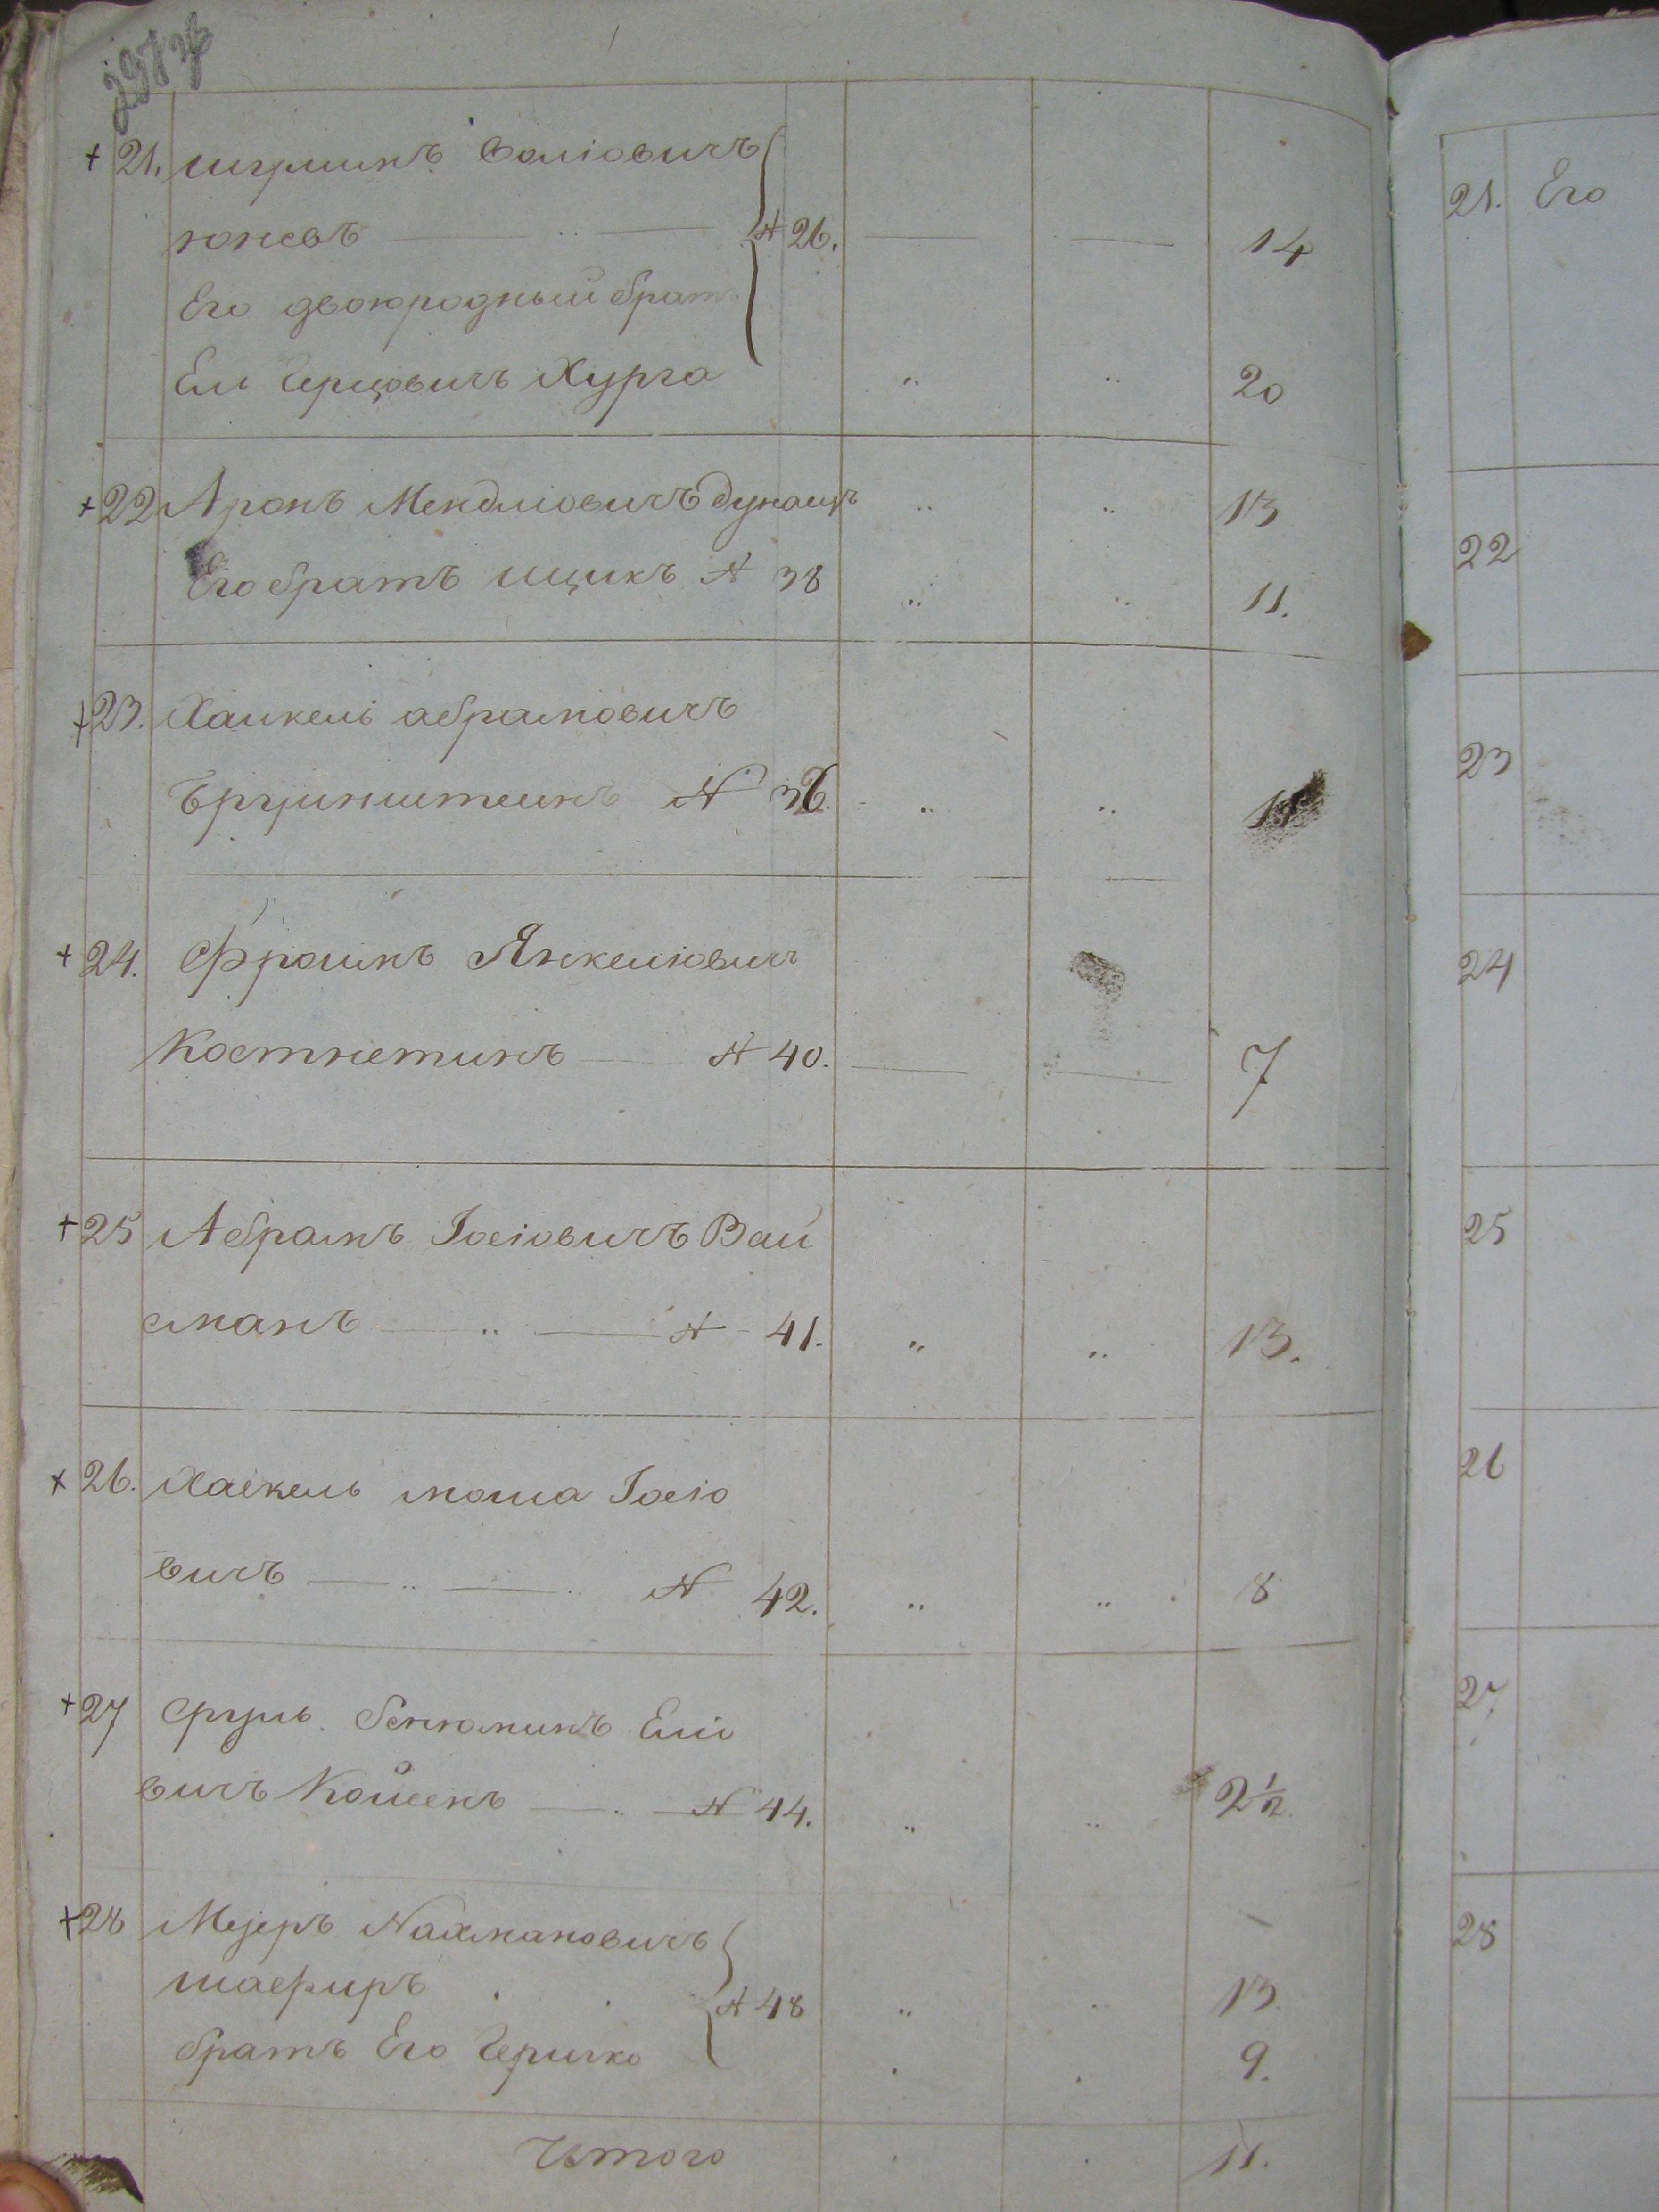 + 21. Шулимъ Воліовичъ
юневъ № 26. 14
Его двоюродный братъ
Ель Герцовичъ Хурга " " 20
+ 22 Аронъ Мендліовичъ Дунаецъ " " 13
Его братъ ицикъ № 38 " " 11.
+ 23. Хаикель абрамовичъ
№ 36 " "
+ 24. Фроимъ Янкеліовичъ
Костнетинъ № 40. 7
+ 25 Абрамъ Іосіовичъ Вай
сманъ № 41. " " 13.
+ 26. Хаскель моша Іосіо
вичъ № 42. " " 8
+ 27 Сруль Беніоминъ Еліо
вичъ Койсенъ № 44. " " 2 1/2
+ 28 Меэеръ Нахмановичъ
шаефиръ № 48 " " 13.
братъ Его Гершко 9.
Итого 11.
21. Его
22
23
24
25
26
27
28